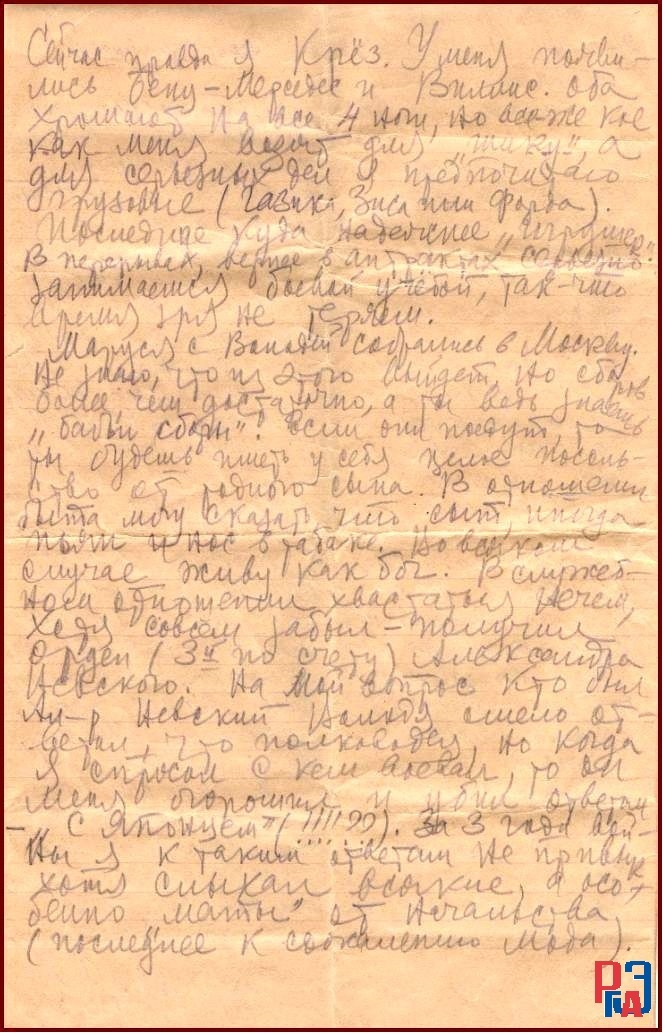 Сейчас правда я Крёз. У меня появи-
лись Бенц-Мерседес и Виллис. Оба
хромают на все 4 ноги, но всё же кое
как меня возят для "шику", а
для серьезных дел я предпочитаю
грузовые (Газика, Зиса или Форда).
Последние куда надежнее "игрушек".
В перерывах, вернее в антрактах серьезно
занимаемся боевой учебой, так-что
время зря не теряем.
Маруся с Володей собрались в Москву.
Не знаю, что из этого выйдет, но сборов
более чем достаточно, а ты ведь знаешь
"бабьи сборы". Если они поедут, то
ты будешь иметь у себя целое посоль-
ство от родного сына. В отношении
быта могу сказать, что сыт, иногда
пьян и нос в табаке. Во всяком
случае живу как бог. В служеб-
ном отношении хвастаться нечем,
хотя совсем забыл - получил
Орден (3й по счету) Александра
Невского. На мой вопрос кто был
Ал-р Невский Володя смело от-
ветил, что полководец, но когда
я спросил с кем воевал, то он
меня огорошил и убил ответом
- "С Японцем" (!!!!??). За 3 года вой-
ны я к таким ответам не привык
хотя слыхал всякие, а осо-
бенно "маты" от начальства
(последнее к сожалению мода).
РГАЭ